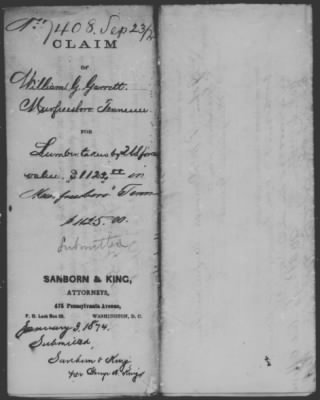 No 7408. Sep 23/
CLAIM
OF
William G. Garrett.
Murfreesboro Tennessee
FOR
Lumber taken by U.S. forces
value. $1122.00 in
Murfreesboro Tenn
$1425.00.
Submitted
SANBORN & KING,
ATTORNEYS,
475 Pennsylvania Avenue,
P. O. Lock Box 28. WASHINGTON, D. C.
January 3, 1874.
Submitted,
Sanborn & King